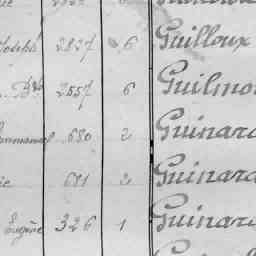 Joseph 2837 6 Guilloux
Bte 2557 6 Guilmo
Emmanuel 680 2 Guinard
ie 611 2 Guinard
Eugène 326 1 Guinard